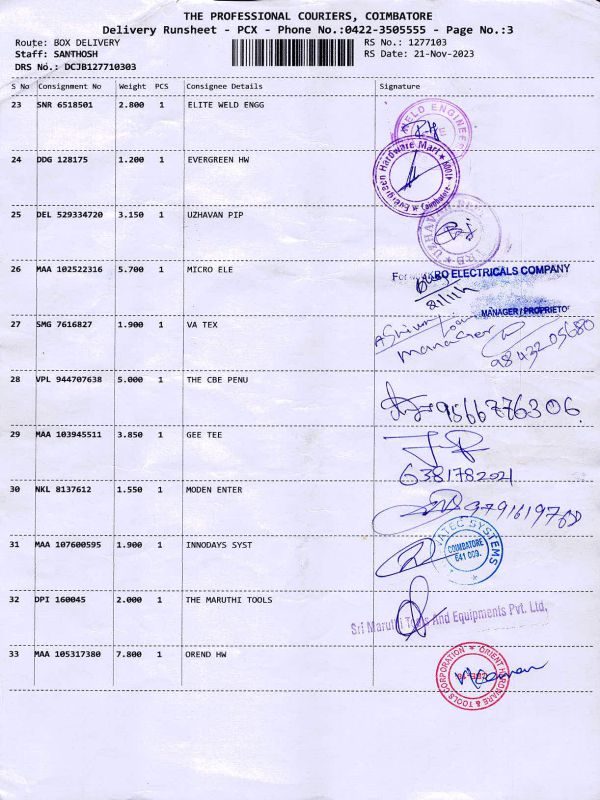 THE PROFESSIONAL COURIERS, COIMBATORE
Delivery Runsheet - PCX - Phone No.:0422-3505555 - Page No.:3
Route: BOX DELIVERY RS No.: 1277103
Staff: SANTHOSH RS Date: 21-Nov-2023
DRS No.: DCJB127710303
S No Consignment No Weight PCS Consignee Details Signature
23 SNR 6518501 2.800 1 ELITE WELD ENGG
WELD ENGINEER
24 DDG 128175 1.200 1 EVERGREEN HW
Evergreen Hardware Mart
Coimbatore
25 DEL 529334720 3.150 1 UZHAVAN PIP
26 MAA 102522316 5.700 1 MICRO ELE
For ELECTRICALS COMPANY
MANAGER / PROPRIETOR
27 SMG 7616827 1.900 1 VA TEX
Manager
98432 05680
28 VPL 944707638 5.000 1 THE CBE PENU
9566776306
29 MAA 103945511 3.850 1 GEE TEE
6381782021
30 NKL 8137612 1.550 1 MODEN ENTER
31 MAA 107600595 1.900 1 INNODAYS SYST
SYSTEMS
COIMBATORE
641 009.
32 DPI 160045 2.000 1 THE MARUTHI TOOLS
Sri Maruthi Tools And Equipments Pvt. Ltd,
33 MAA 105317380 7.800 1 OREND HW
ORIENT HARDWARE & TOOLS CORPORATION